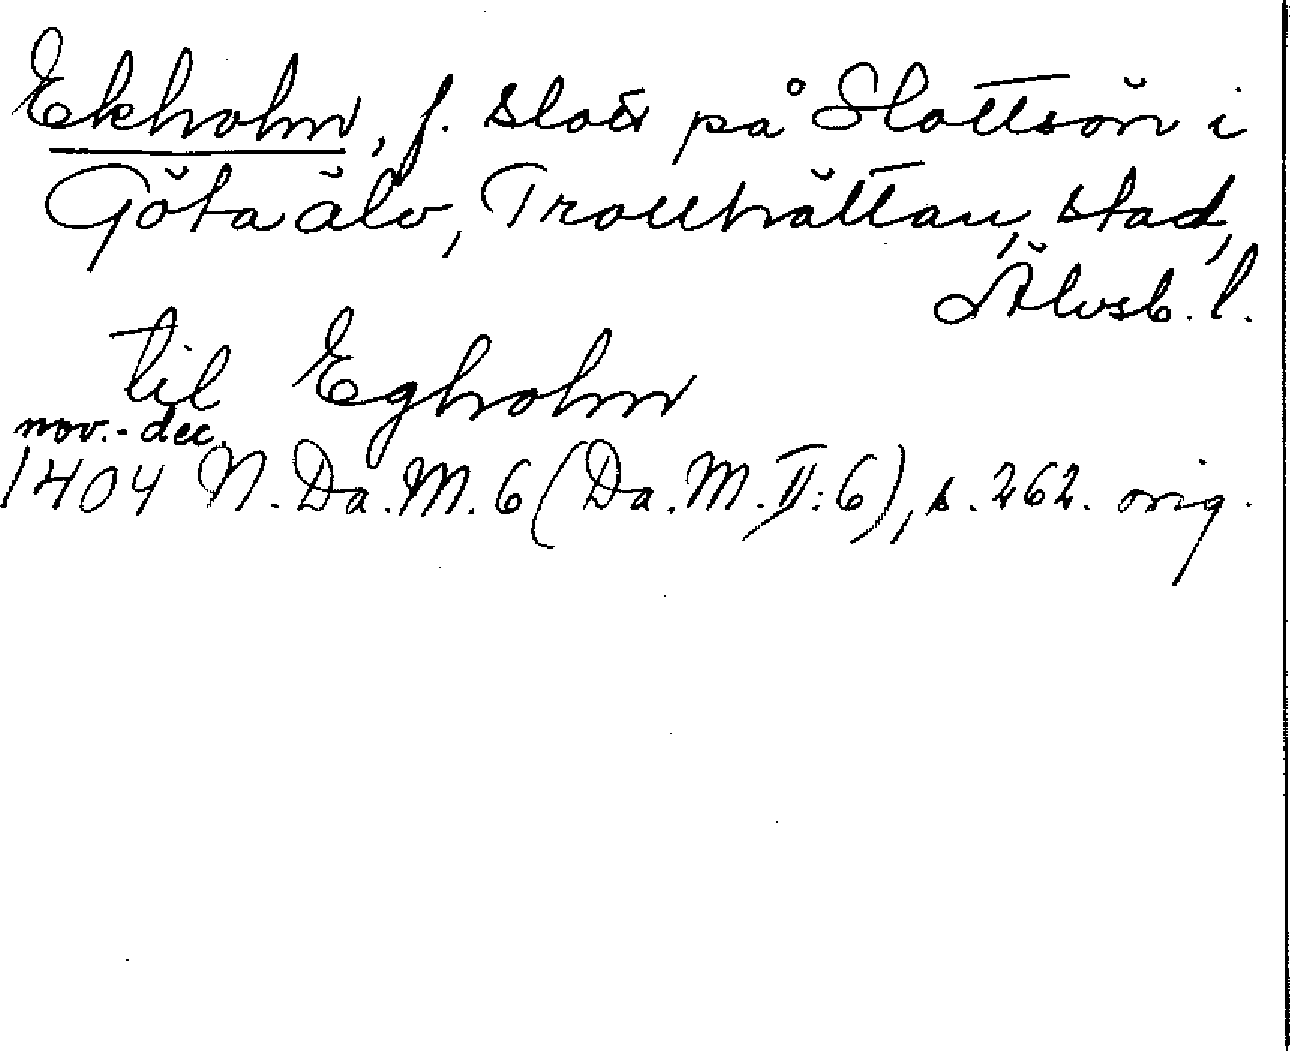 Ekholm, f. slott på Slottsön i
Göta älv, Trollhättan, stad,
Älvsb. l.
til Egholm
nov.-dec.
1404 N. Da. M. 6 (Da. M. II: 6), s. 262. orig.